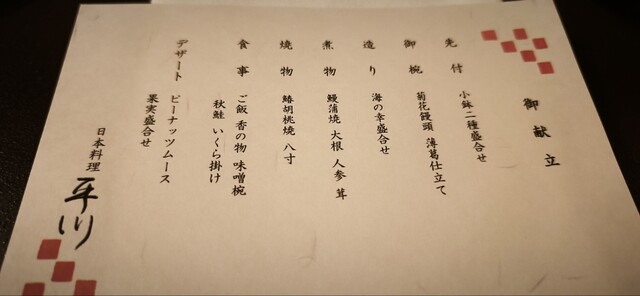 御献立
先付 小鉢二種盛合せ
御椀 菊花饅頭 薄葛仕立て
造り 海の幸盛合せ
煮物 鰻蒲焼 大根 人参 茸
焼物 鰆胡桃焼 八寸
食事 ご飯 香の物 味噌椀
秋鮭 いくら掛け
デザート ピーナッツムース
果実盛合せ
日本料理 平川